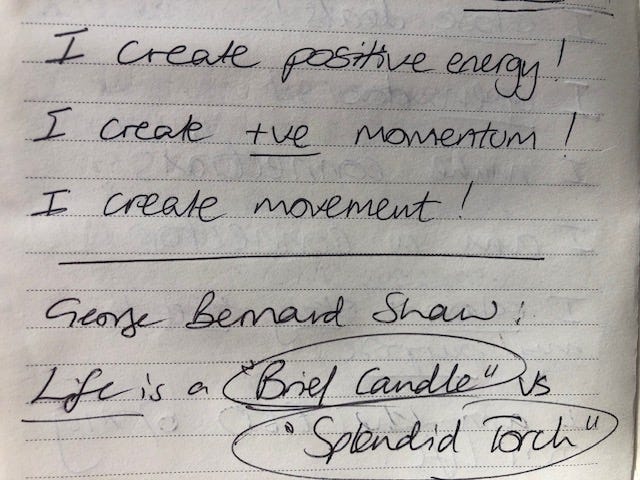 I create positive energy!
I create +ve momentum!
I create movement!
George Bernard Shaw:
Life is a "Brief Candle" vs
"Splendid Torch"